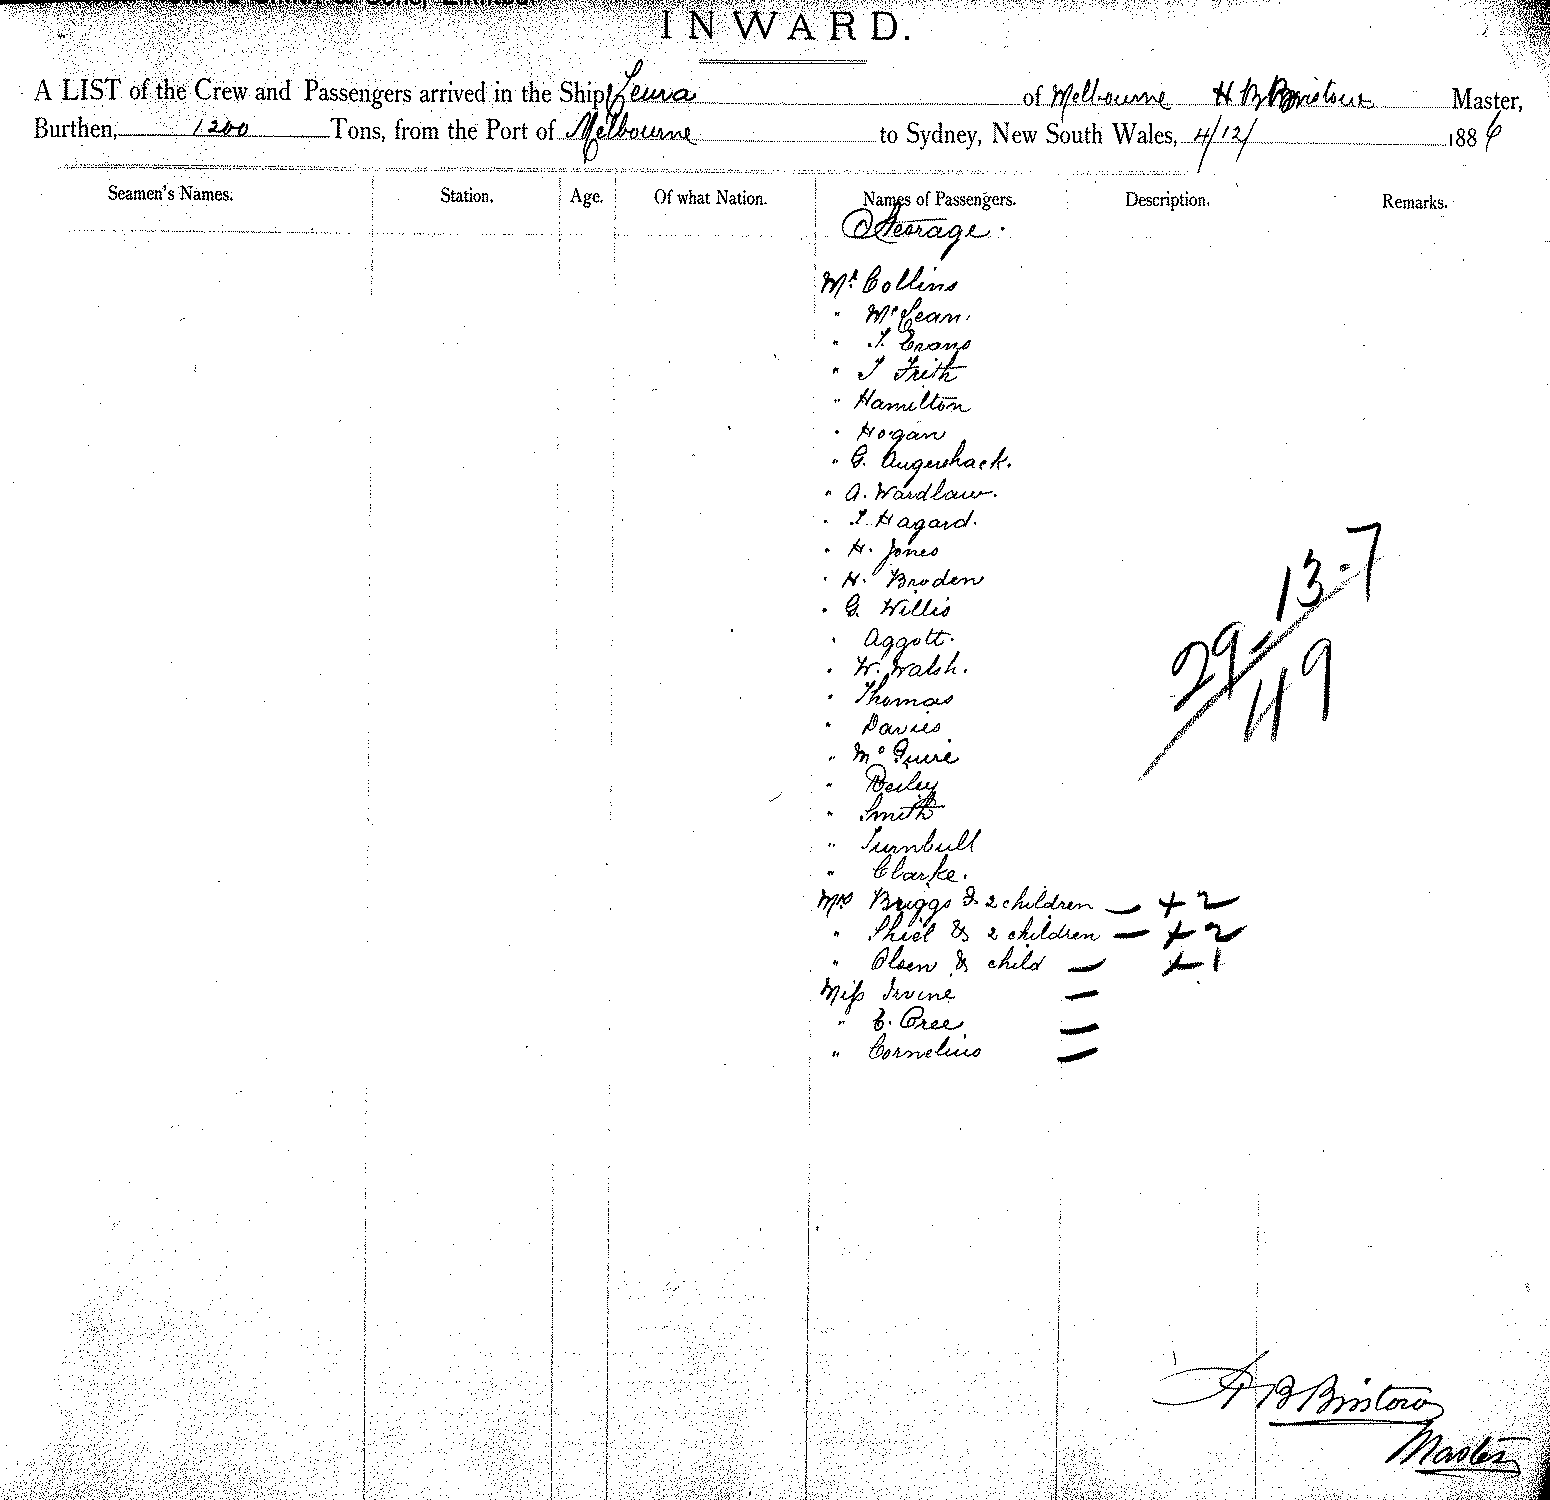 INWARD.
A LIST of the Crew and Passengers arrived in the Ship Leura of Melbourne H B Bristow Master,
Burthen, 1200 Tons, from the Port of Melbourne to Sydney, New South Wales, 4/12/ 1886
Seamen's Names. Station. Age. Of what Nation. Names of Passengers. Description. Remarks.
Steorage.
Mr. Collins
" McLean.
" T. Evans
" T Frith
" Hamilton
" Hogan
" G. Augershack.
" A. Wardlaw.
" T. Hagard.
" H. Jones
" H. Broden
" G. Willis
" Aggott.
" W. Walsh.
" Thomas
" Davies
" McGuire
" Beiley
" Smith
" Turnbull
" Clarke.
Mrs Briggs & 2 children — + 2
" Shiel & 2 children — + 2
" Olsen & child — + 1
Miss Irvine —
" E. Cree —
" Cornelius —
13-7
29-
49
H B Bristow
Master